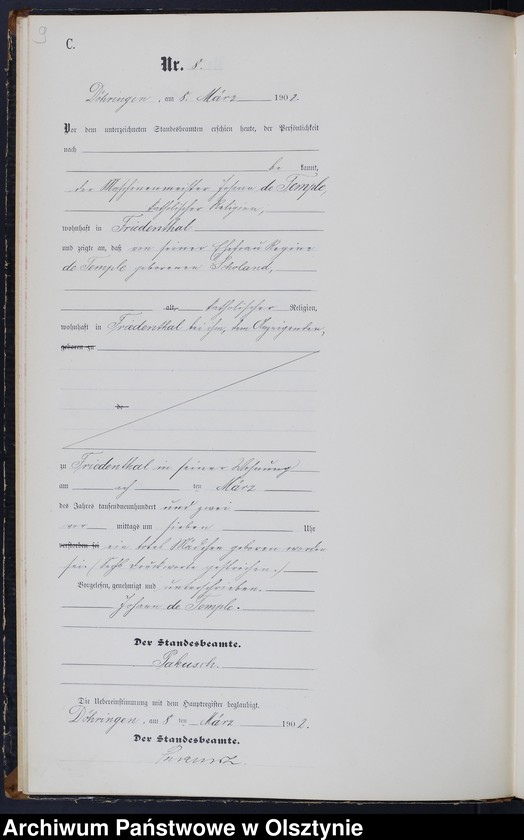 9
C.
Nr. 8.
Döhringen, am 8. März 1902.
Vor dem unterzeichneten Standesbeamten erschien heute, der Persönlichkeit
nach
be kannt,
der Maschinenmeister Johann de Temple,
katholischer Religion,
wohnhaft in Friedenthal
und zeigte an, daß von seiner Ehefrau Regine
de Temple geborenen Skoland,
alt, katholischer Religion,
wohnhaft in Friedenthal bei ihm, dem Anzeigenden,
geboren zu
de
zu Friedenthal in seiner Wohnung
am acht ten März
des Jahres tausendneunhundert und zwei
vor mittags um sieben Uhr
verstorben sei ein totes Mädchen geboren worden
sei. (Sechs Druckworte gestrichen.)
Vorgelesen, genehmigt und unterschrieben.
Johann de Temple.
Der Standesbeamte.
Die Uebereinstimmung mit dem Hauptregister beglaubigt.
Döhringen, am 8 ten März 1902.
Der Standesbeamte.
Archiwum Państwowe w Olsztynie